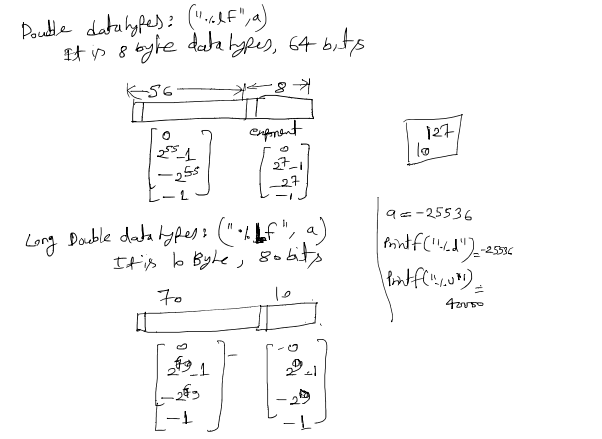 Double datatypes: ("%lf", a)
It is 8 byte datatypes, 64 bits
56 8
exponent
0
2^55-1
-2^55
-1
0
2^7-1
-2^7
-1
127
10
Long Double datatypes: ("%Lf", a)
It is 10 Byte, 80 bits
70 10
0
2^69-1
-2^69
-1
-0
2^9-1
-2^9
-1
a = -25536
Printf("%d") = -25536
Printf("%u") =
40000